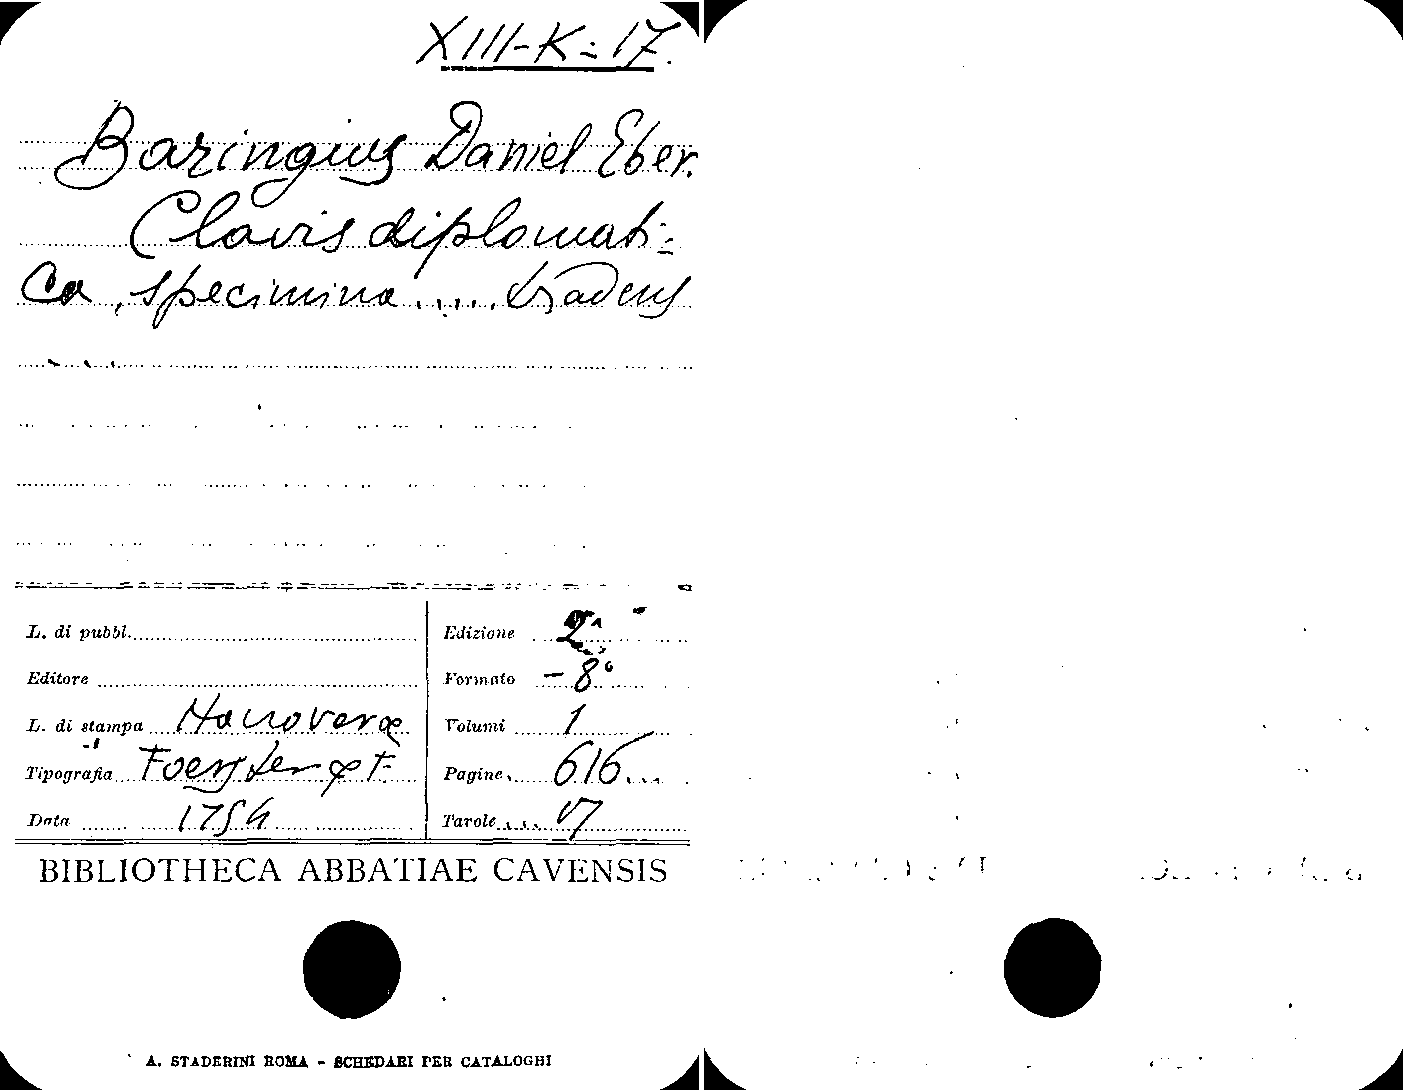 XIII-K=17.
Baringius Daniel Eber.
Clavis diplomati=
ca, specimina .... tradens
L. di pubbl.
Edizione 2ª
Editore
Formato - 8°
L. di stampa Hanoverae
Volumi 1
Tipografia Foerster
Pagine 616
Data 1754
Tavole
BIBLIOTHECA ABBATIAE CAVENSIS
A. STADERINI ROMA - SCHEDARI PER CATALOGHI